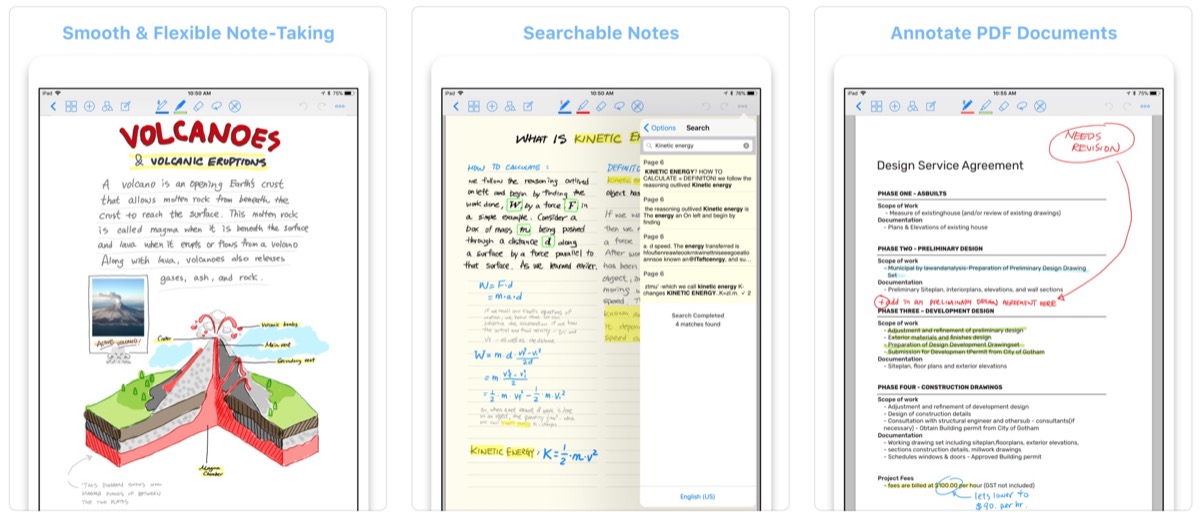 Smooth & Flexible Note-Taking
iPad
10:50 AM
75%
VOLCANOES
& VOLCANIC ERUPTIONS
A volcano is an opening Earth's crust
that allows molten rock from beneath the
crust to reach the surface. This molten rock
is called magma when it is beneath the surface
and lava when it erupts or flows from a volcano
Along with lava, volcanoes also releases
gases, ash, and rock.
Volcanic bombs
Crater
Main vent
Secondary vent
Magma
Chamber
THIS DIAGRAM SHOWS HOW
Searchable Notes
iPad
10:50 AM
75%
WHAT IS KINETIC E
HOW TO CALCULATE :
we follow the reasoning outlined
on left and begin by finding the
work done, W, by a force F in
a simple example. Consider a
box of mass m being pushed
through a distance d along
a surface by a force parallel to
that surface. As we learned earlier.
W=F·d
=m·a·d
KINETIC ENERGY : K=1/2·m·v²
DEFINITO
kinetic e
object has
If we w
then we
a force
After wor
has been
object, a
moving w
speed
Options
Search
Kinetic energy
Page 6
KINETIC ENERGY? HOW TO
CALCULATE = DEFINITONI we follow the
reasoning outlived Kinetic energy
Page 6
the reasoning outlived Kinetic energy is
The energy an On left and begin by
finding
Page 6
a. d speed. The energy transferred is
Page 6
ztmu' -which we call kinetic energy K-
changes KINETIC ENERGY
Search Completed
4 matches found
English (US)
Annotate PDF Documents
iPad
10:55 AM
75%
NEEDS
REVISION
Design Service Agreement
PHASE ONE - ASBUILTS
Scope of work
- Measure of existinghouse (and/or review of existing drawings)
Documentation
- Plans & Elevations of existing house
PHASE TWO - PRELIMINARY DESIGN
Scope of work
- Municipal by lawandanalysis-Preparation of Preliminary Design Drawing
Set
Documentation
- Preliminary Siteplan, interiorplans, elevations, and wall sections
+ add in an PRELIMINARY DESIGN AGREEMENT HERE
PHASE THREE - DEVELOPMENT DESIGN
Scope of work
- Adjustment and refinement of preliminary design
- Exterior materials and finishes design
- Preparation of Design Development Drawingset
- Submission for Development tPermit from City of Gotham
Documentation
- Siteplan, floor plans and exterior elevations
PHASE FOUR - CONSTRUCTION DRAWINGS
Scope of work
- Adjustment and refinement of development design
- Design of construction details
- Consultation with structural engineer and othersub - consultants(if
necessary) - Obtain Building permit from City of Gotham
Documentation
- Working drawing set including siteplan,floorplans, exterior elevations,
- sections construction details, millwork drawings
- Schedules windows & doors - Approved Building permit
Project Fees
- fees are billed at $100.00 per hour (GST not included)
lets lower to
$90. per hr.